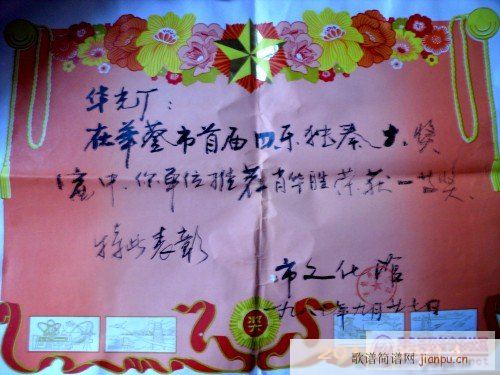 华光厂：
在华蓥市首届四乐独奏大奖
赛中，你单位推荐肖华胜荣获一等奖、
特此表彰
市文化馆
一九八 年九月 日
奖
歌谱简谱网 jianpu.cn